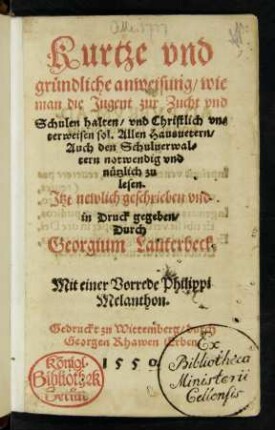 Kurtze vnd
gründliche anweisung/ wie
man die Jugent zur Zucht vnd
Schulen halten/ vnd Christlich vn-
terweisen sol. Allen Hausuetern/
Auch den Schulverwal-
tern notwendig vnd
nützlich zu
lesen.
Itzt newlich geschrieben vnd
in Druck gegeben/
Durch
Georgium Lauterbeck.
Mit einer Vorrede Philippi
Melanthon.
Gedruckt zu Wittemberg/ durch
Georgen Rhawen Erben
1550
Königl.
Bibliothek
Berlin
Ex
Bibliotheca
Ministerii
Cellensis